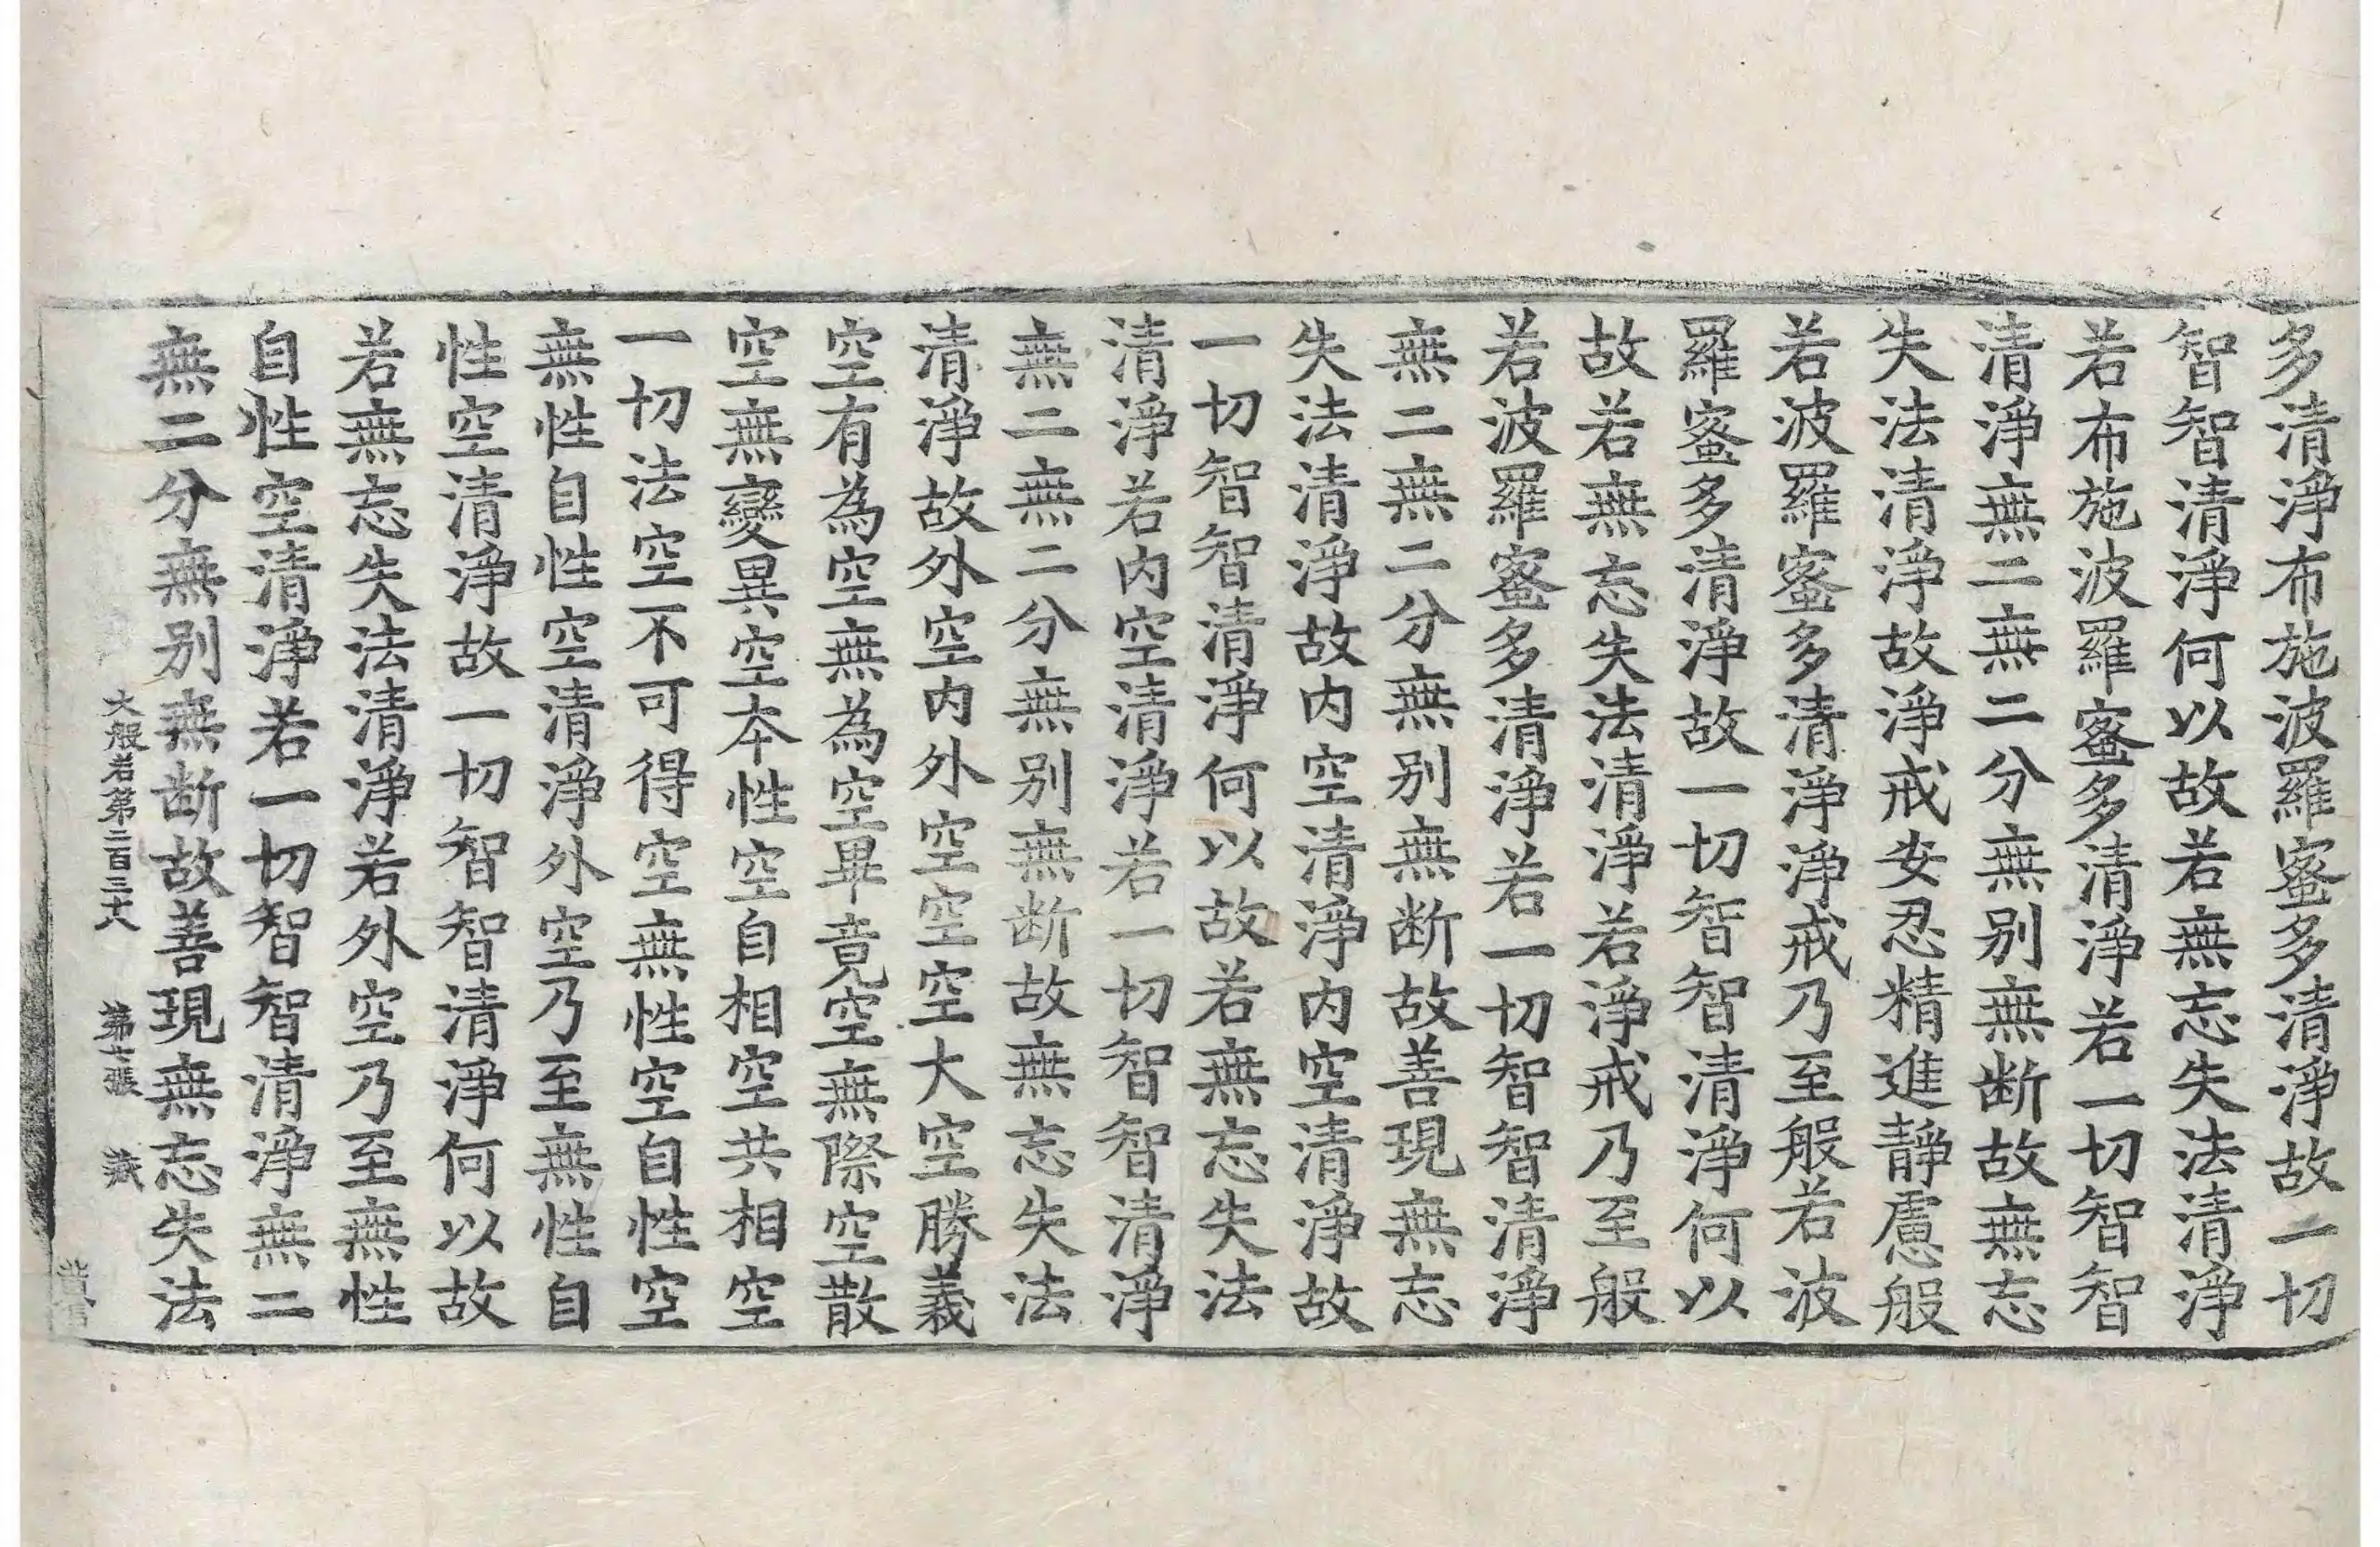 多清淨布施波羅蜜多清淨故一切
智智清淨何以故若無忘失法清淨
若布施波羅蜜多清淨若一切智智
清淨無二無二分無別無断故無忘
失法清淨故淨戒安忍精進靜慮般
若波羅蜜多清淨淨戒乃至般若波
羅蜜多清淨故一切智智清淨何以
故若無忘失法清淨若淨戒乃至般
若波羅蜜多清淨若一切智智清淨
無二無二分無別無断故善現無忘
失法清淨故內空清淨內空清淨故
一切智智清淨何以故若無忘失法
清淨若內空清淨若一切智智清淨
無二無二分無別無断故無忘失法
清淨故外空內外空空空大空勝義
空有為空無為空畢竟空無際空散
空無變異空本性空自相空共相空
一切法空不可得空無性空自性空
無性自性空清淨外空乃至無性自
性空清淨故一切智智清淨何以故
若無忘失法清淨若外空乃至無性
自性空清淨若一切智智清淨無二
無二分無別無断故善現無忘失法
大般若第二百三十八 第七張